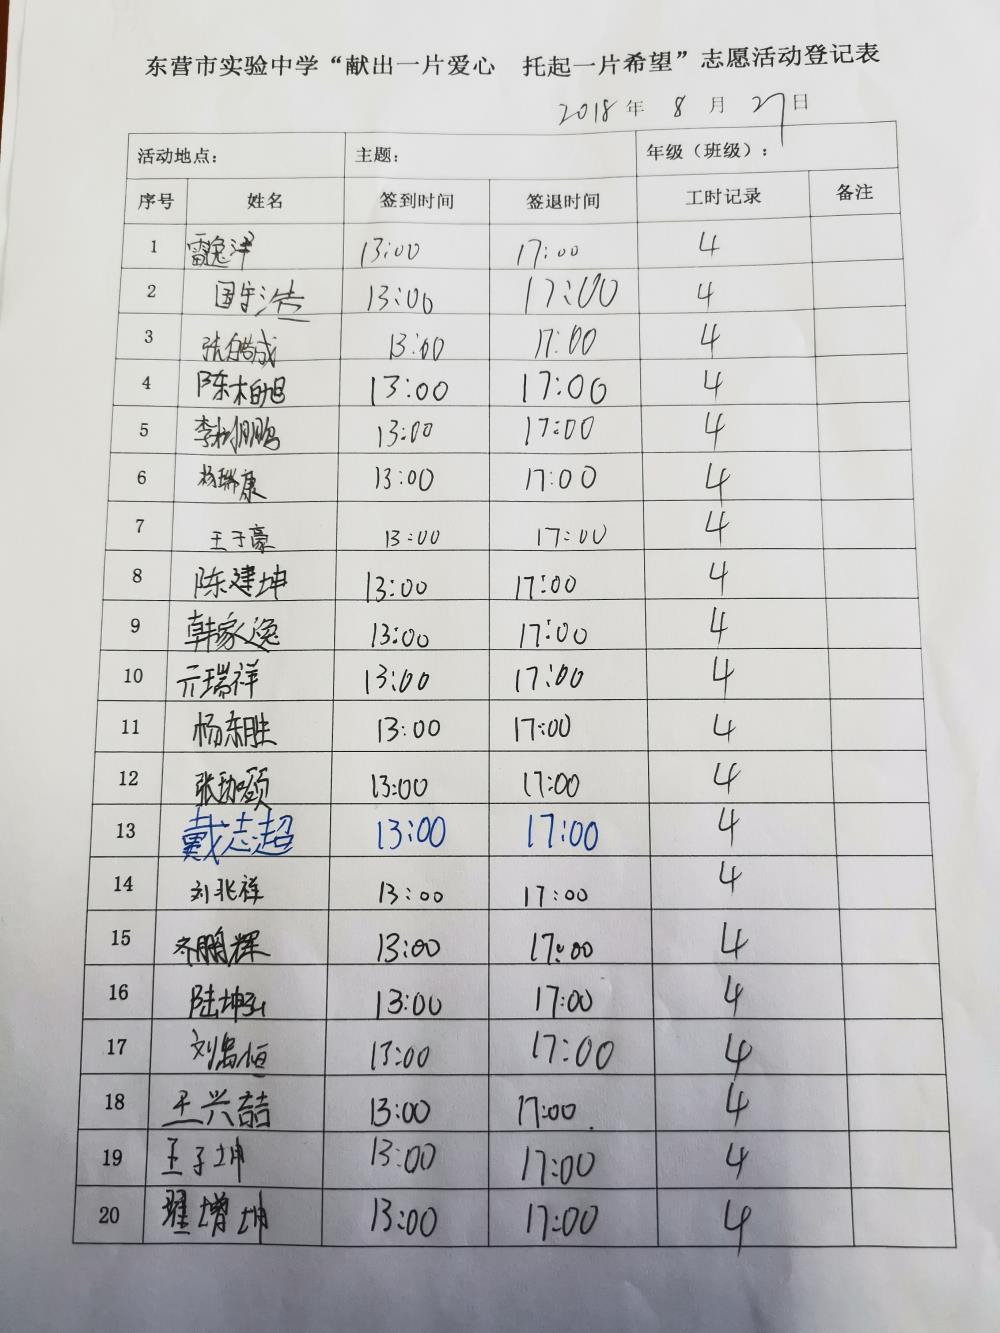 东营市实验中学“献出一片爱心　托起一片希望”志愿活动登记表
2018年 8 月 27日
活动地点： 主题： 年级（班级）：
序号 姓名 签到时间 签退时间 工时记录 备注
1 雷逸洋 13:00 17:00 4
2 国宇浩 13:00 17:00 4
3 张皓成 13:00 17:00 4
4 陈柏旭 13:00 17:00 4
5 李 鹏 13:00 17:00 4
6 杨瑞康 13:00 17:00 4
7 王于豪 13:00 17:00 4
8 陈建坤 13:00 17:00 4
9 韩家逸 13:00 17:00 4
10 亓瑞祥 13:00 17:00 4
11 杨东胜 13:00 17:00 4
12 张 13:00 17:00 4
13 戴志超 13:00 17:00 4
14 刘兆祥 13:00 17:00 4
15 齐鹏辉 13:00 17:00 4
16 陆坤弘 13:00 17:00 4
17 刘 恒 13:00 17:00 4
18 王兴喆 13:00 17:00 4
19 王子坤 13:00 17:00 4
20 翟增坤 13:00 17:00 4